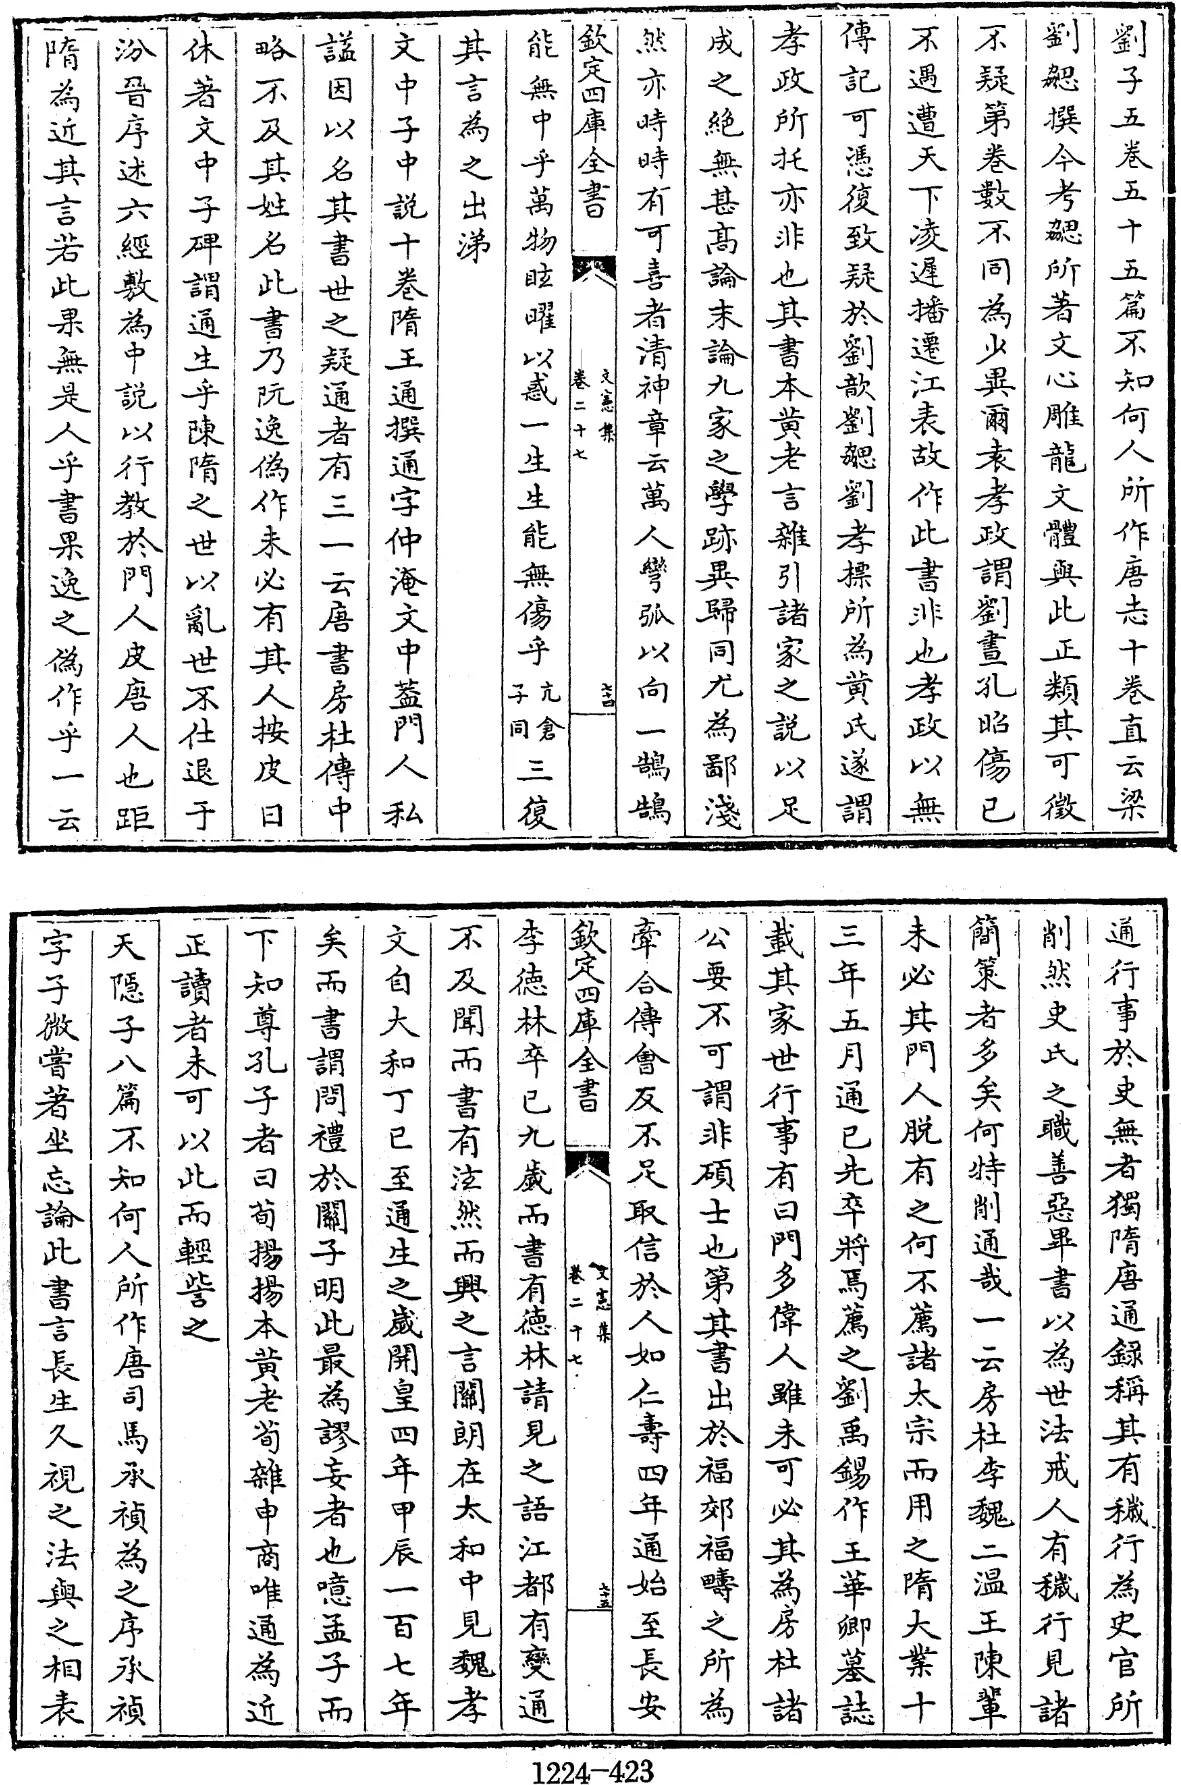 劉子五卷五十五篇不知何人所作唐志十卷直云梁
劉勰撰今考勰所著文心雕龍文體與此正類其可徵
不疑第卷數不同為少異爾袁孝政謂劉晝孔昭傷已
不遇遭天下凌遲播遷江表故作此書非也孝政以無
傳記可憑復致疑於劉歆劉勰劉孝標所為黃氏遂謂
孝政所托亦非也其書本黃老言雜引諸家之說以足
成之絶無甚高論末論九家之學跡異歸同尤為鄙淺
然亦時時有可喜者清神章云萬人彎弧以向一鵠鵠
欽定四庫全書
文憲集
卷二十七
六十四
能無中乎萬物眩曜以惑一生生能無傷乎亢倉子同三復
其言為之出涕
文中子中說十卷隋王通撰通字仲淹文中葢門人私
諡因以名其書世之疑通者有三一云唐書房杜傳中
略不及其姓名此書乃阮逸偽作未必有其人按皮日
休著文中子碑謂通生乎陳隋之世以亂世不仕退于
汾晉序述六經敷為中說以行教於門人皮唐人也距
隋為近其言若此果無是人乎書果逸之偽作乎一云
通行事於史無者獨隋唐通録稱其有穢行為史官所
削然史氏之職善惡畢書以為世法戒人有穢行見諸
簡策者多矣何特削通哉一云房杜李魏二溫王陳輩
未必其門人脱有之何不薦諸太宗而用之隋大業十
三年五月通已先卒將焉薦之劉禹錫作王華卿墓誌
載其家世行事有曰門多偉人雖未可必其為房杜諸
公要不可謂非碩士也第其書出於福郊福疇之所為
牽合傳會反不足取信於人如仁壽四年通始至長安
欽定四庫全書
文憲集
卷二十七
六十五
李德林卒已九歲而書有德林請見之語江都有變通
不及聞而書有泫然而興之言關朗在太和中見魏孝
文自大和丁已至通生之歲開皇四年甲辰一百七年
矣而書謂問禮於關子明此最為謬妄者也噫孟子而
下知尊孔子者曰荀揚揚本黃老荀雜申商唯通為近
正讀者未可以此而輕訾之
天隱子八篇不知何人所作唐司馬承禎為之序承禎
字子微嘗著坐忘論此書言長生久視之法與之相表
1224-423